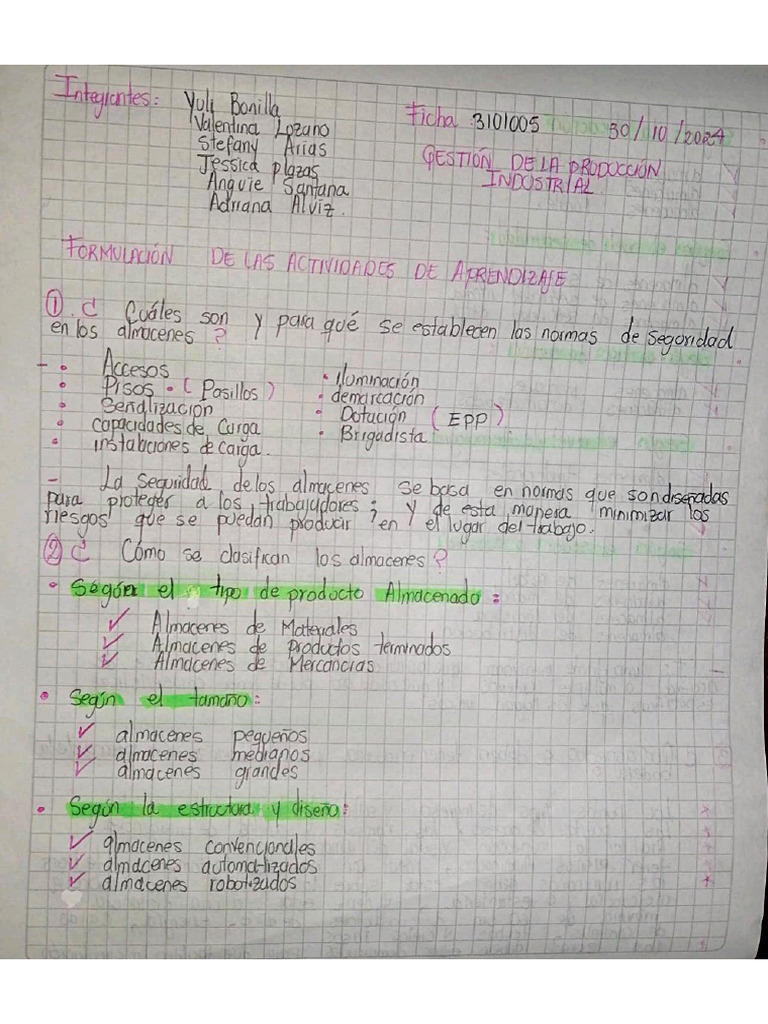 Integrantes: Yuli Bonilla
Valentina Lozano
Stefany Arias
Jessica plazas
Anguie Santana
Adriana Alviz.
Ficha 3101005 30/10/2024
GESTIÓN DE LA PRODUCCIÓN
INDUSTRIAL
FORMULACIÓN DE LAS ACTIVIDADES DE APRENDIZAJE
①. ¿ Cuáles son y para qué se establecen las normas de seguridad
en los almacenes ?
- • Accesos
• Pisos • ( Pasillos )
• Señalización
• capacidades de Carga
• instalaciones de carga.
• Iluminación
• demarcación
• Dotación ( EPP )
• Brigadista
- La seguridad de los almacenes se basa en normas que son diseñadas
para proteger a los trabajadores ; y de esta manera minimizar los
riesgos que se puedan producir en el lugar del trabajo.
② ¿ Cómo se clasifican los almacenes ?
• Según el tipo de producto Almacenado :
✓ Almacenes de Materiales
✓ Almacenes de Productos terminados
✓ Almacenes de Mercancias
• Según el tamaño :
✓ almacenes pequeños
✓ almacenes medianos
✓ almacenes grandes
• Según la estructura y diseño :
✓ almacenes convencionales
✓ almacenes automatizados
✓ almacenes robotizados